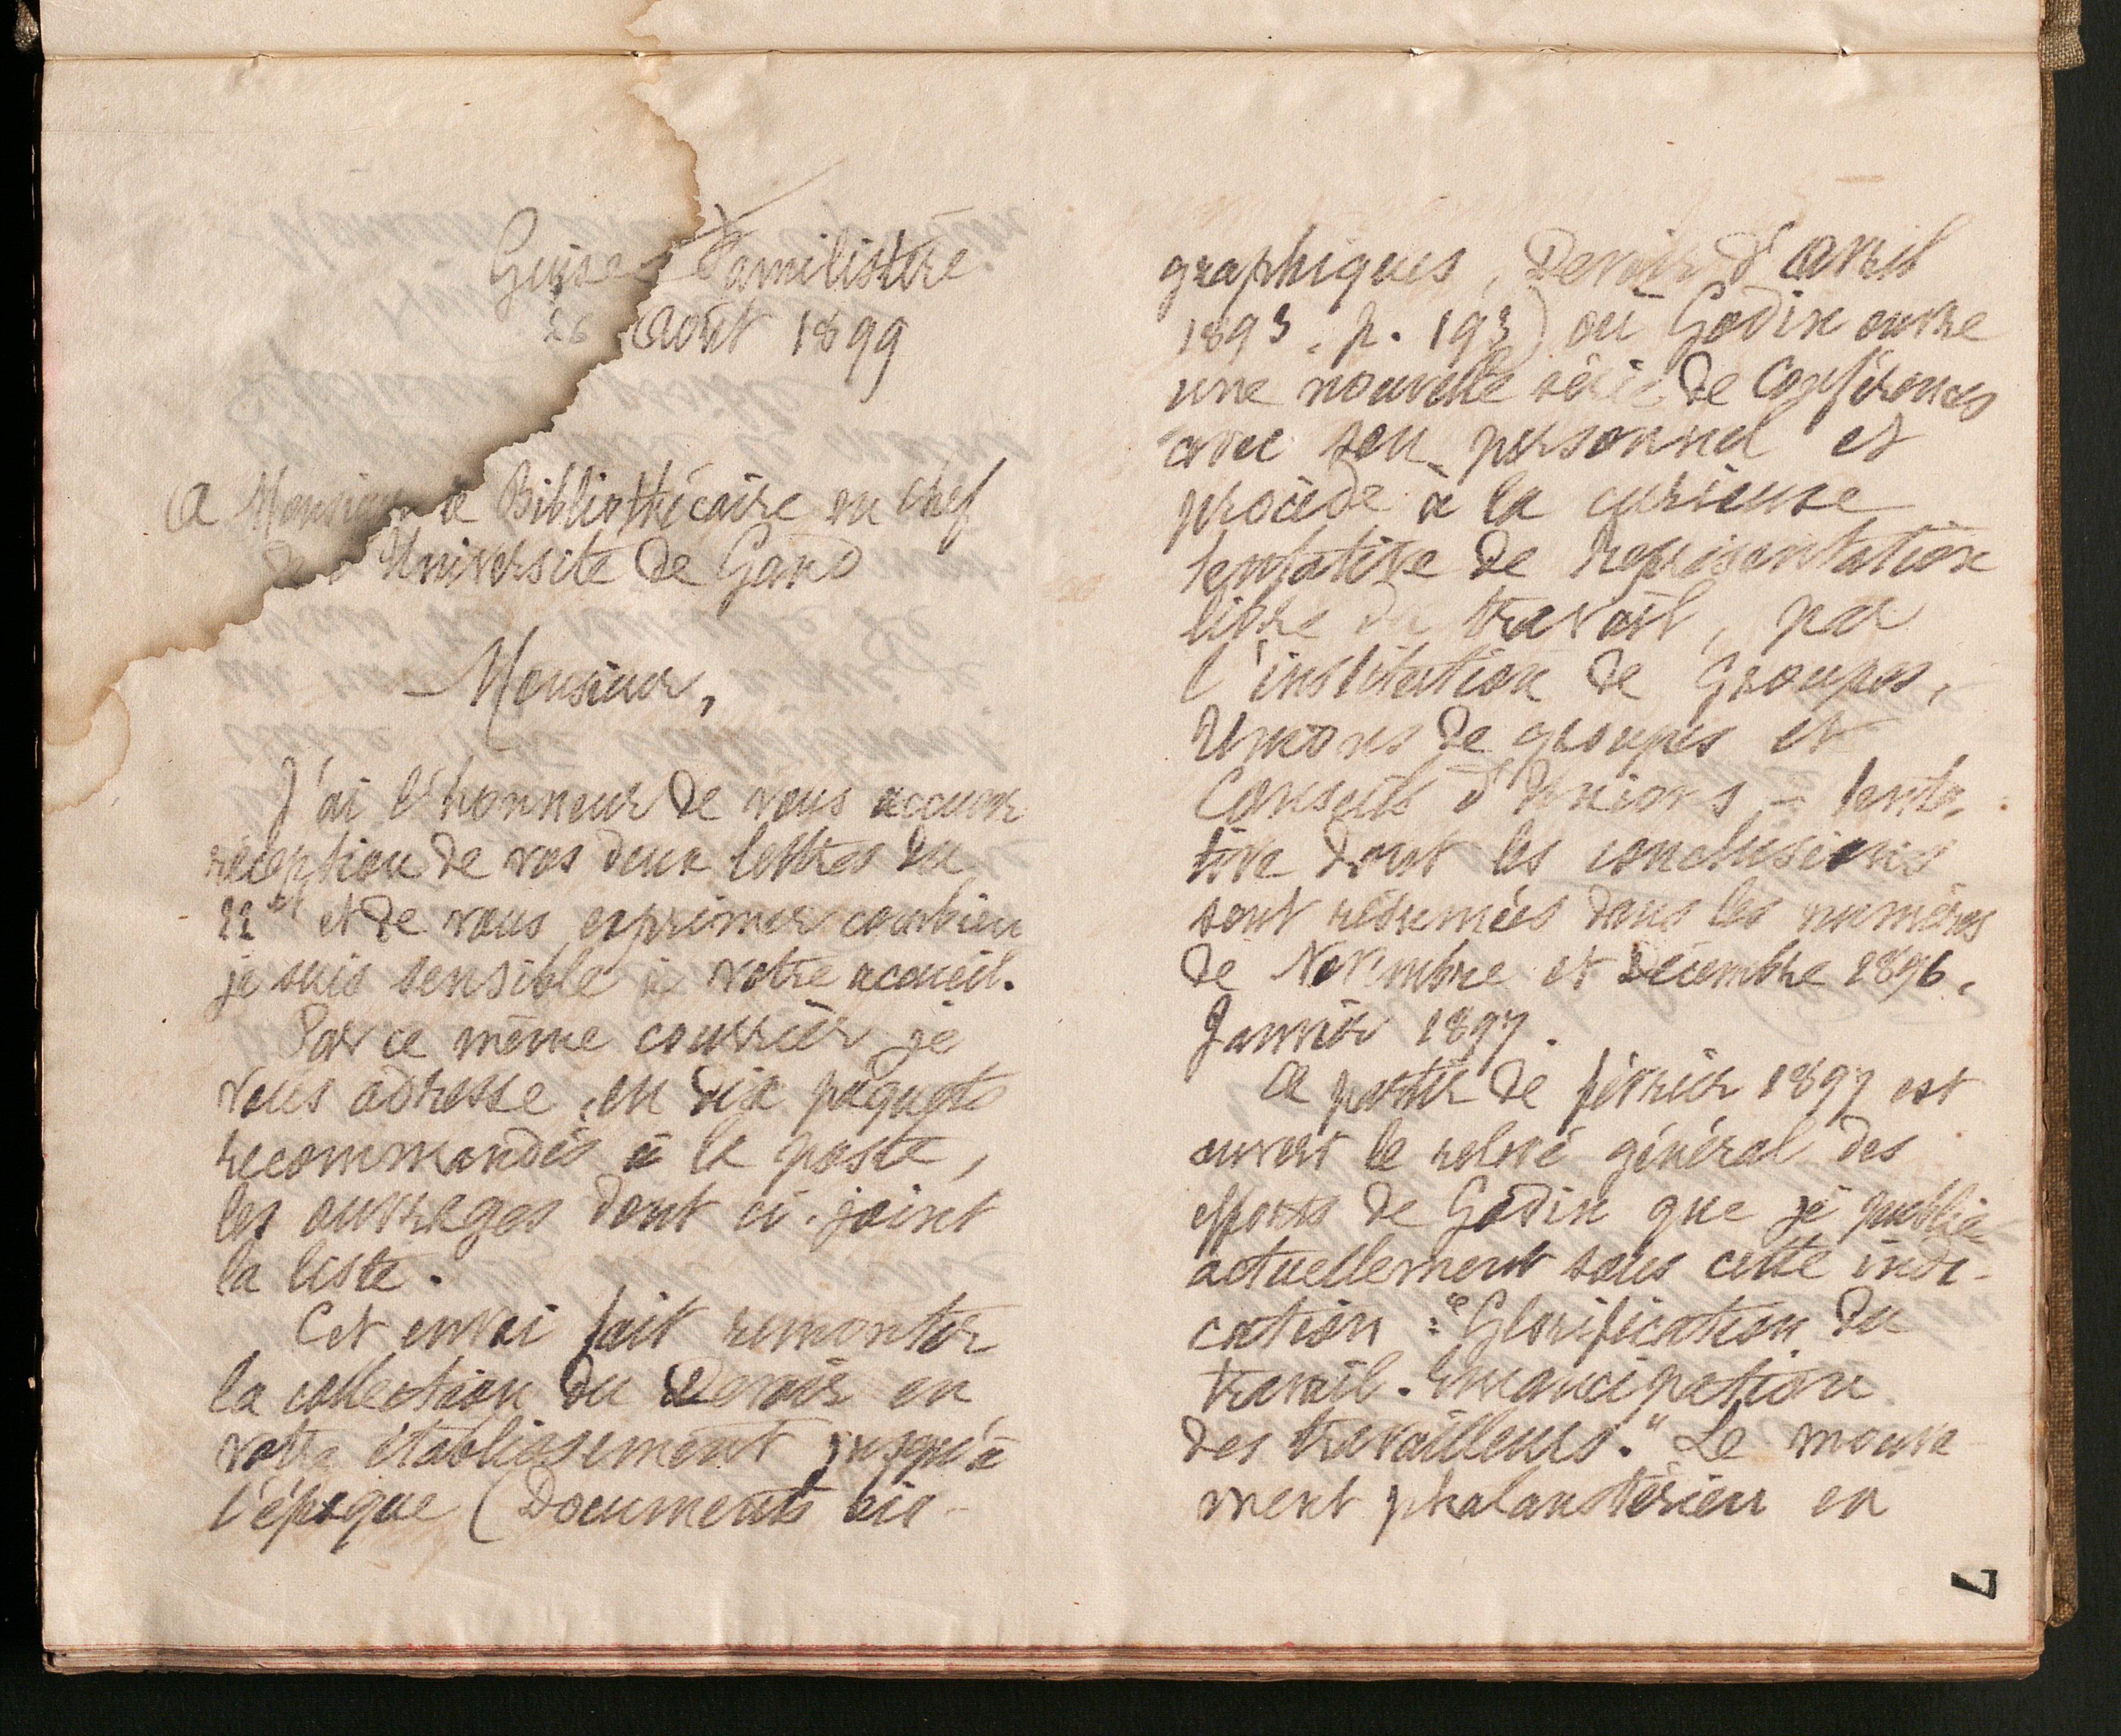 Guise Familistère
26 Août 1899
A Monsieur le Bibliothécaire en chef
de l'Université de Gand
Monsieur,
J'ai l'honneur de vous accuser
réception de vos deux lettres du
22 ct et de vous exprimer combien
je suis sensible à votre accueil.
Par ce même courrier je
vous adresse, en dix paquets
recommandés à la poste,
les ouvrages dont ci-joint
la liste.
Cet envoi fait remonter
la collection du Devoir en
votre établissement jusqu'à
l'époque (Documents bio-
graphiques, Devoir d'avril
1893, p. 193) où Godin ouvre
une nouvelle série de Conférences
avec son personnel et
procède à la curieuse
tentative de représentation
libre du travail, par
l'institution de Groupes,
Unions de groupes et
Conseils d'Unions - tenta-
tive dont les conclusions
sont résumées dans les numéros
de Novembre et Décembre 1896,
Janvier 1897.
A partir de février 1897 est
ouvert le relevé général des
efforts de Godin que je publie
actuellement sous cette indi-
cation : "Glorification du
travail. Emancipation
des travailleurs." Le mouve-
ment phalanstérien en
7